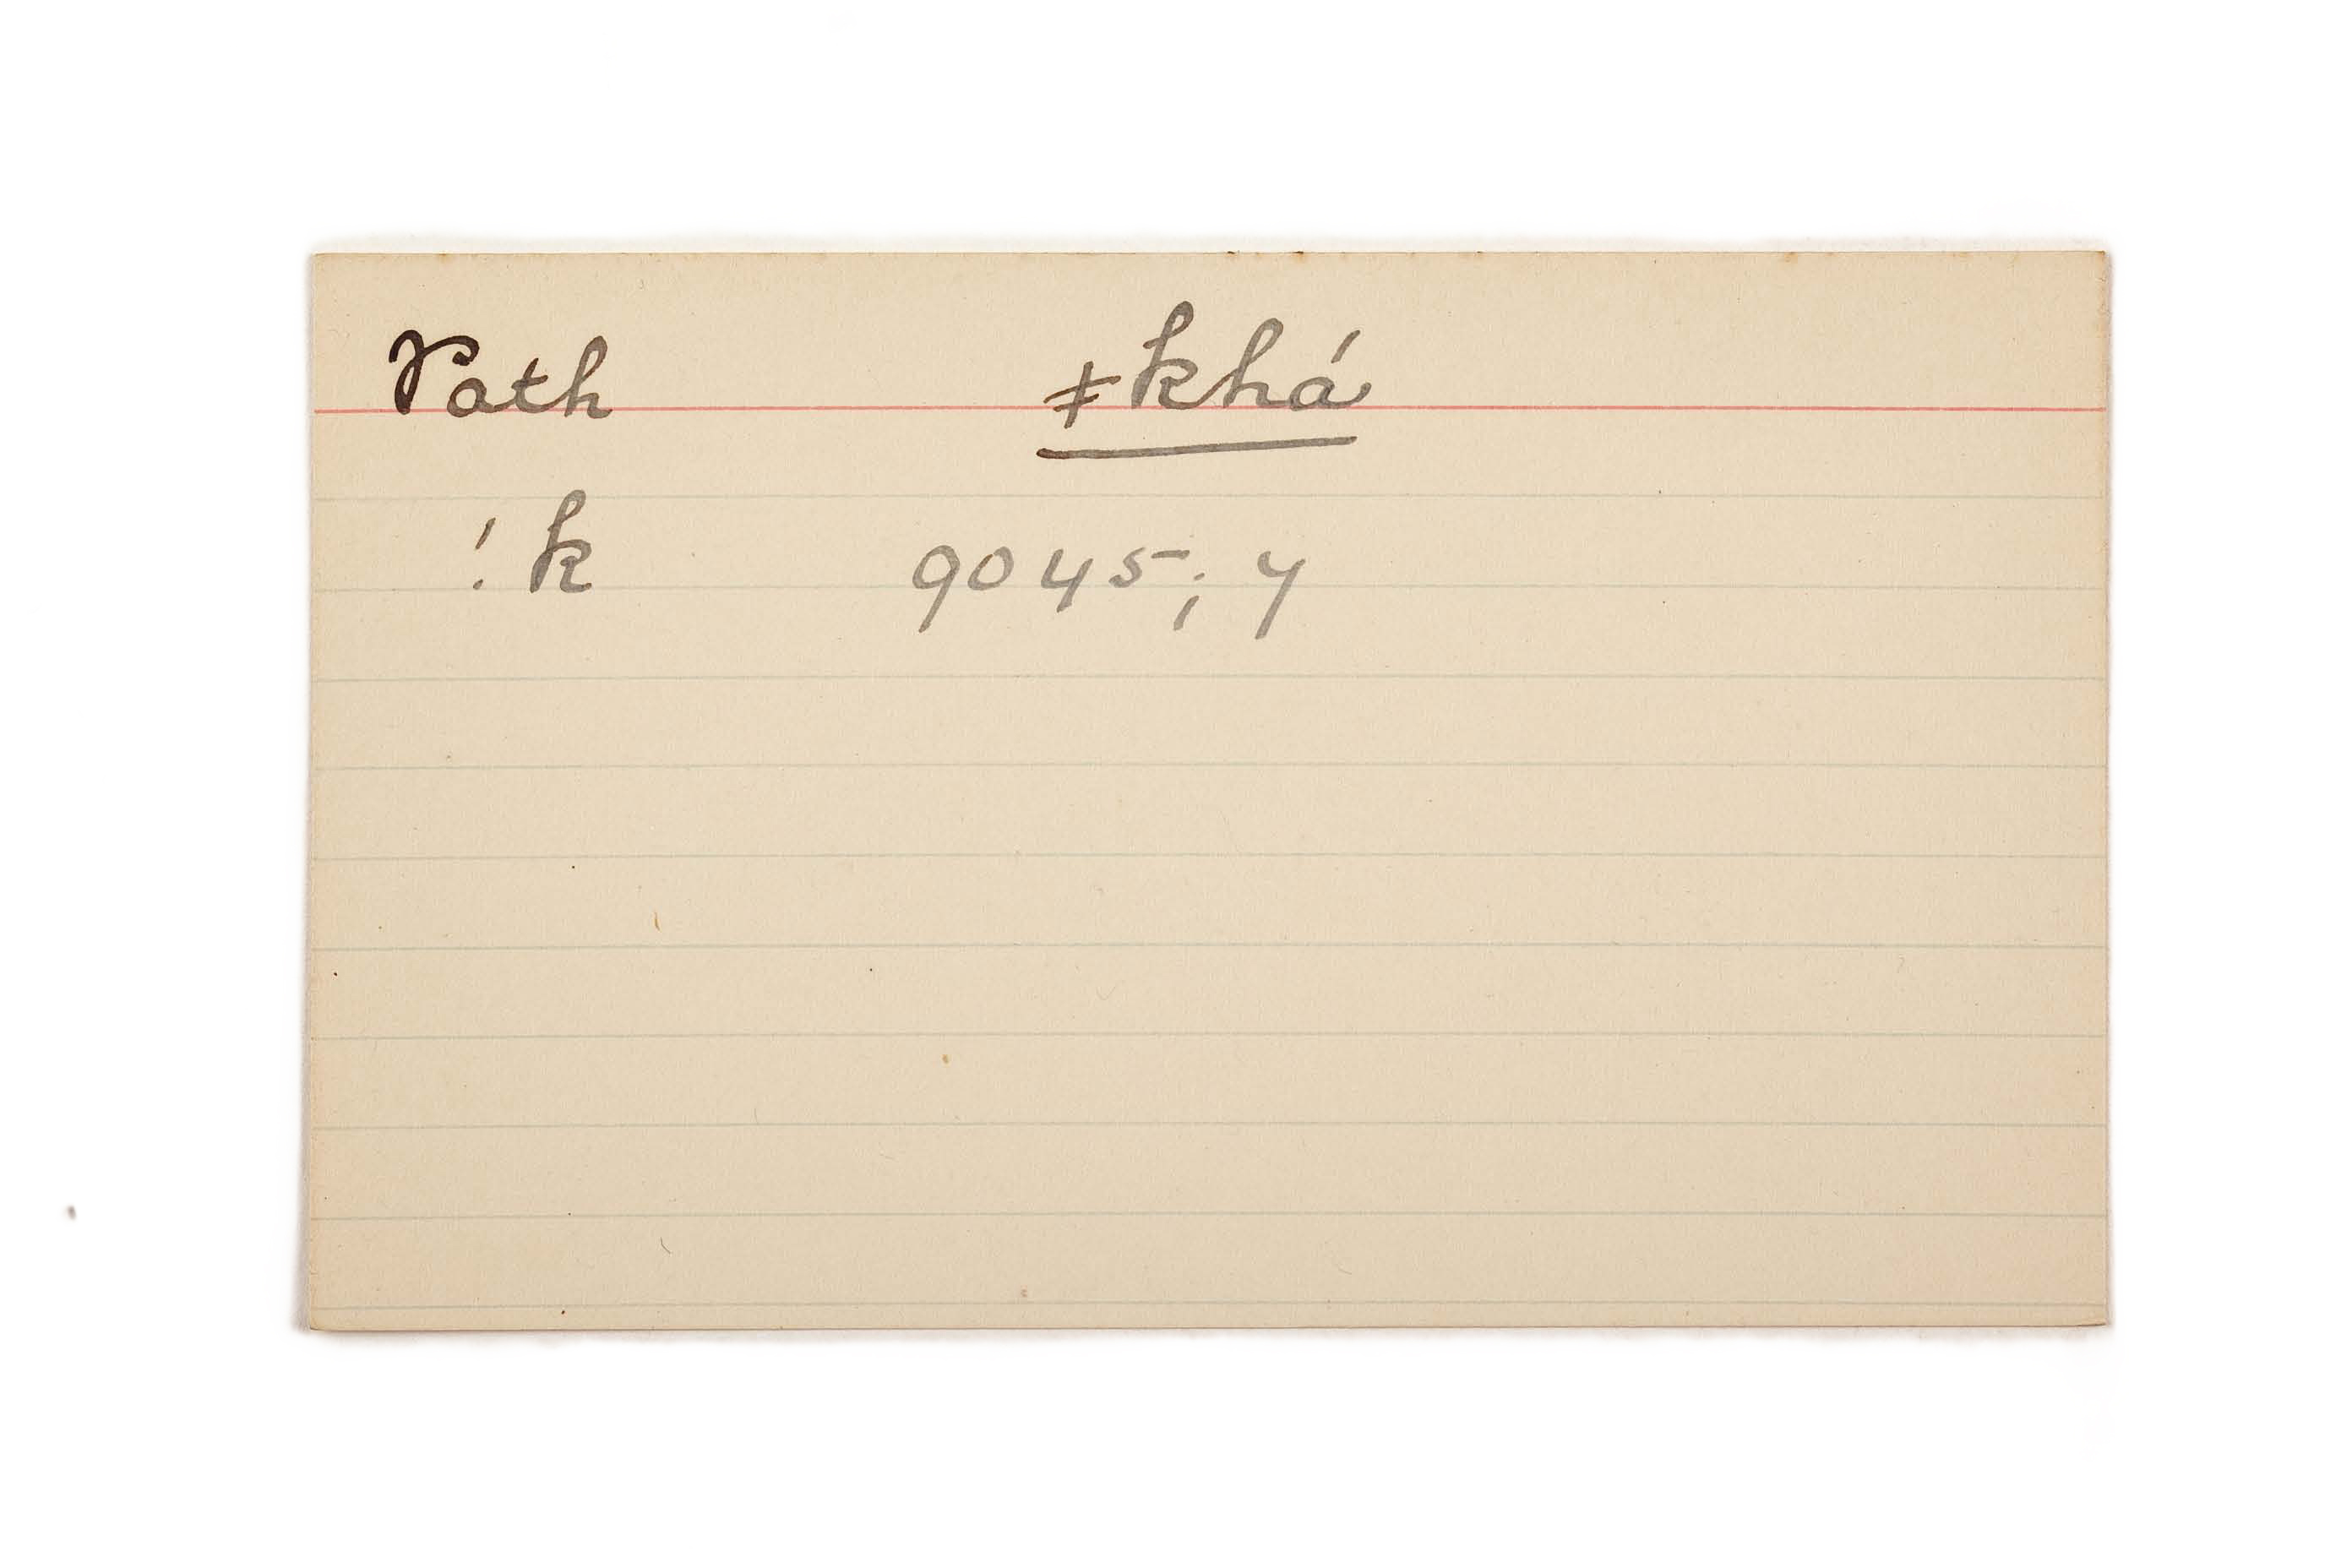 Path ǂkhá
!k 9045; y